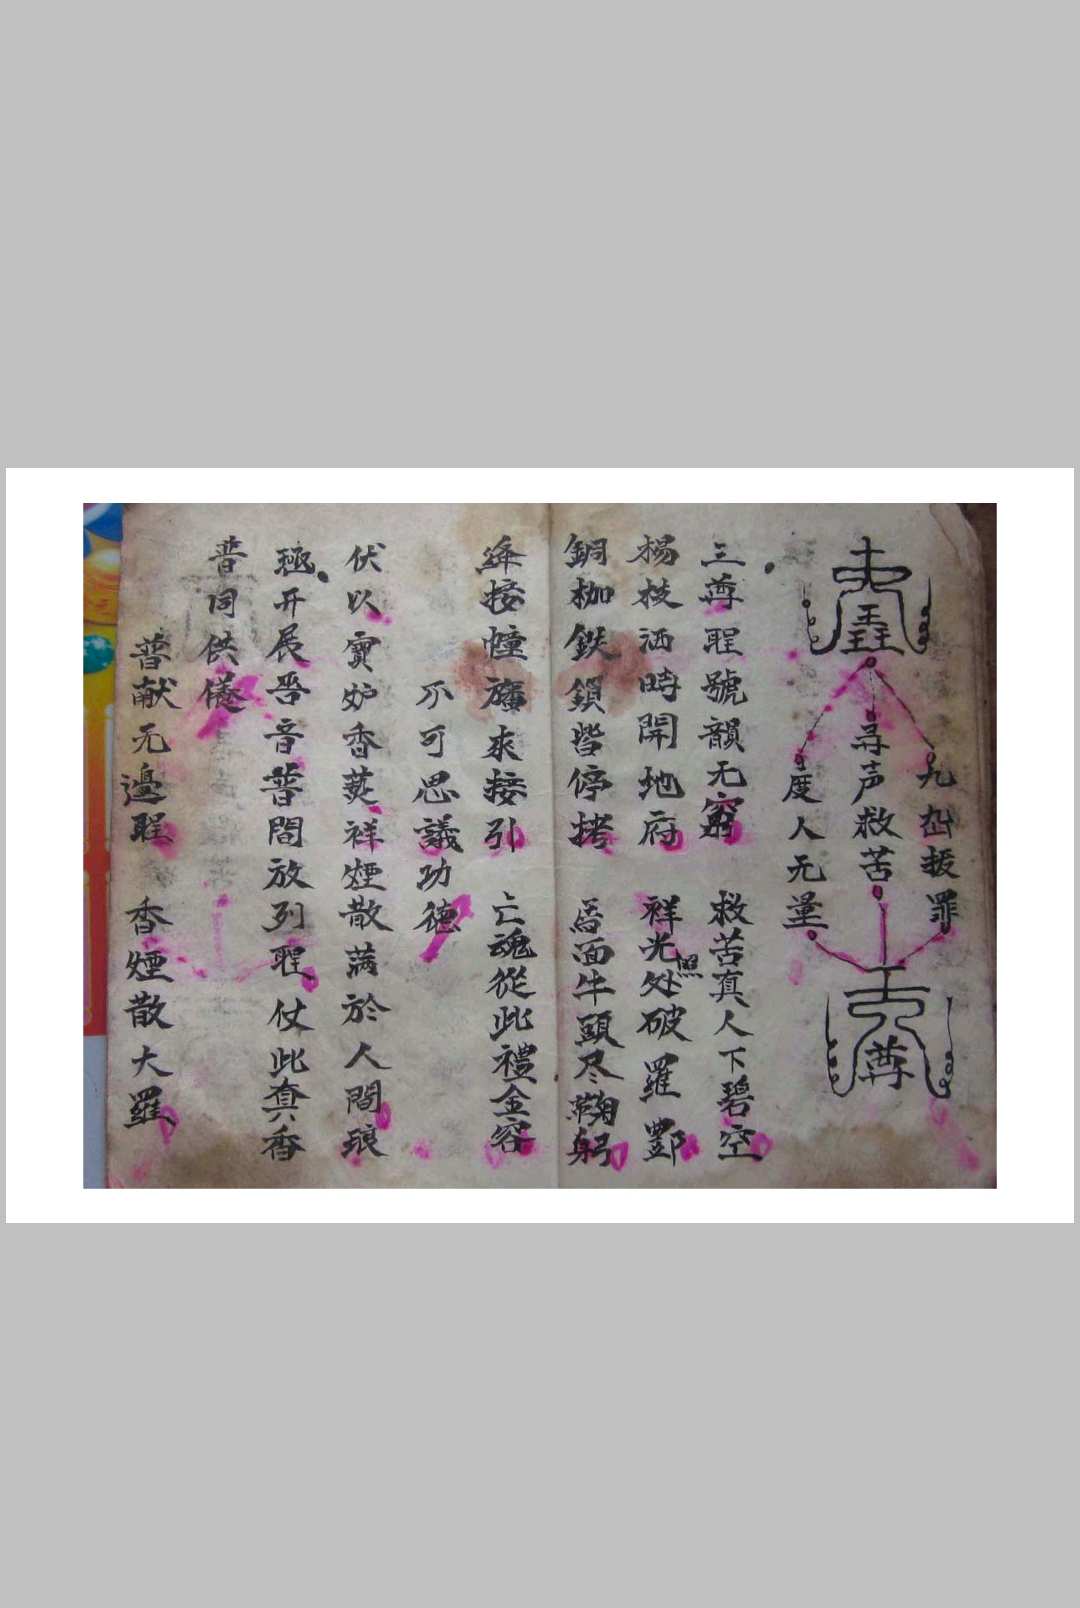 九幽拔罪
太
尋声救苦
天尊
度人无量
三尊聖號韻无窮　救苦真人下碧空
楊枝洒時開地府　祥光照处破羅酆
銅枷鉄鎖皆停拷　馬面牛頭尽鞠躬
絳接幢旛來接引　亡魂從此禮金容
不可思議功德
伏以寶炉香爇祥煙散滿於人間琅
開展音普間放列聖仗此真香
普同供養
普献无邊聖　香煙散大羅